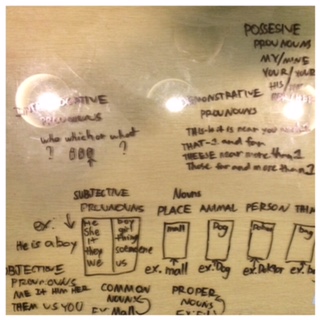 POSSESIVE
PRONOUNS
MY/MINE
YOUR/YOUR
HIS/
PRONOUNS
who which or what
? ?
DEMONSTRATIVE
PRONOUNS
This-it is near you
THAT-1 and far
THEESE near more than 1
Those far and more than 1
SUBJECTIVE
PRONOUNS
ex:
He is a boy
He
She
It
they
We
boy
girl
thing
someone
us
Nouns
PLACE ANIMAL PERSON
mall
Dog
ex: mall
ex: Dog
OBJECTIVE
PRONOUNS
ME IT HIM HER
THEM US YOU
COMMON
NOUNS
ex: Mall
PROPER
NOUNS